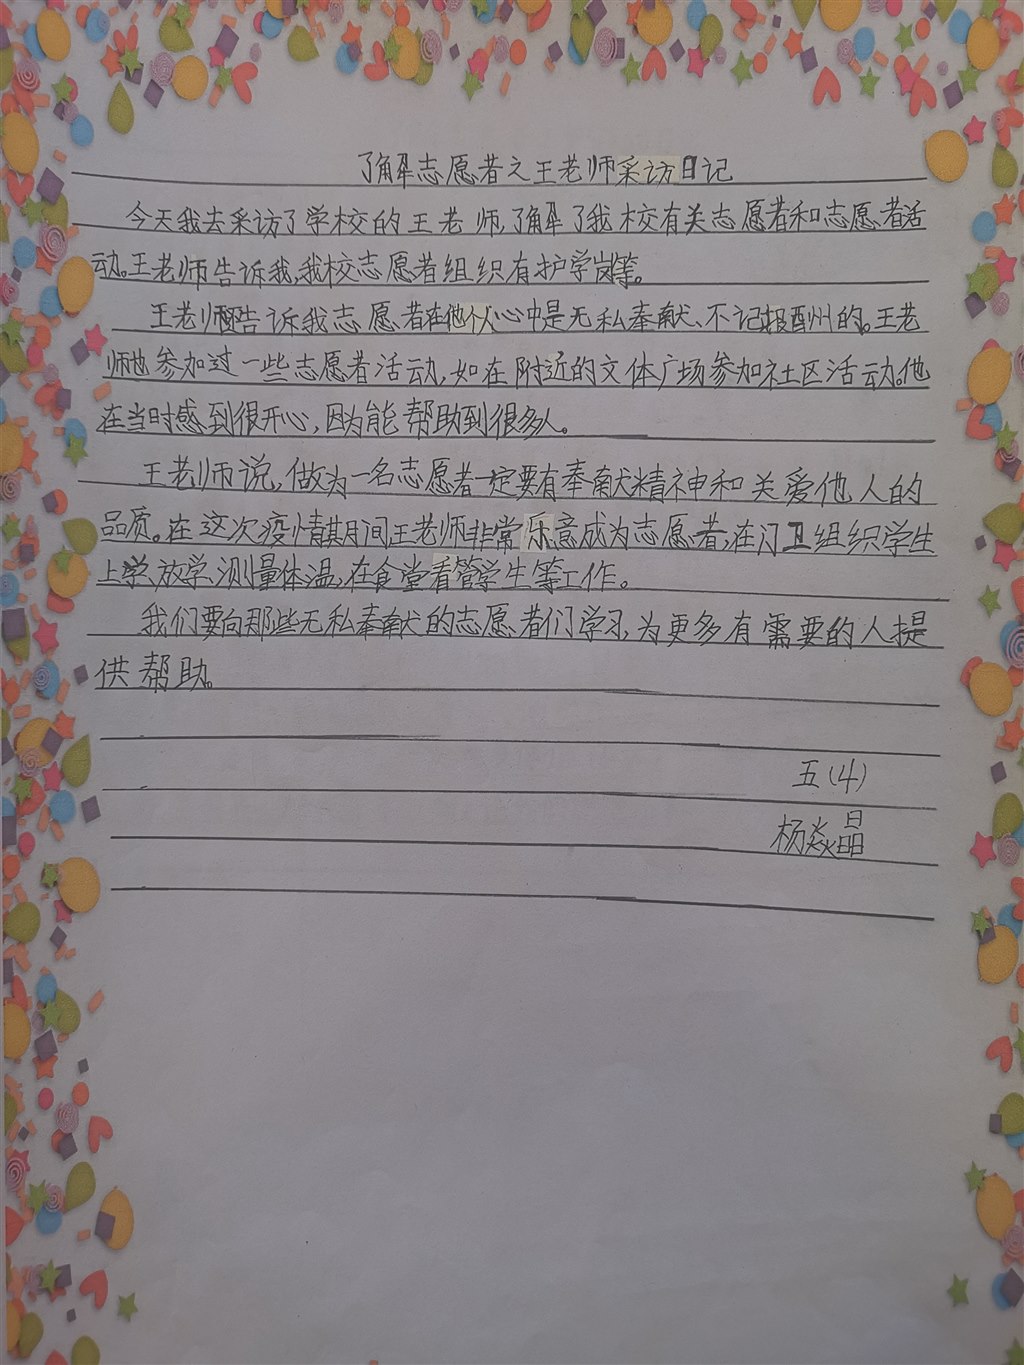 了解志愿者之王老师采访日记
今天我去采访了学校的王老师,了解了我校有关志愿者和志愿者活
动。王老师告诉我,我校志愿者组织有护学岗等。
王老师还告诉我志愿者在他个人心中是无私奉献、不记报酬的。王老
师也参加过一些志愿者活动,如在附近的文体广场参加社区活动。他
在当时感到很开心,因为能帮助到很多人。
王老师说,做为一名志愿者一定要有奉献精神和关爱他人的
品质。在这次疫情期间王老师非常乐意成为志愿者,在门卫组织学生
上学、放学、测量体温,在食堂看管学生等工作。
我们要向那些无私奉献的志愿者们学习,为更多有需要的人提
供帮助。
五(4)
杨焱晶